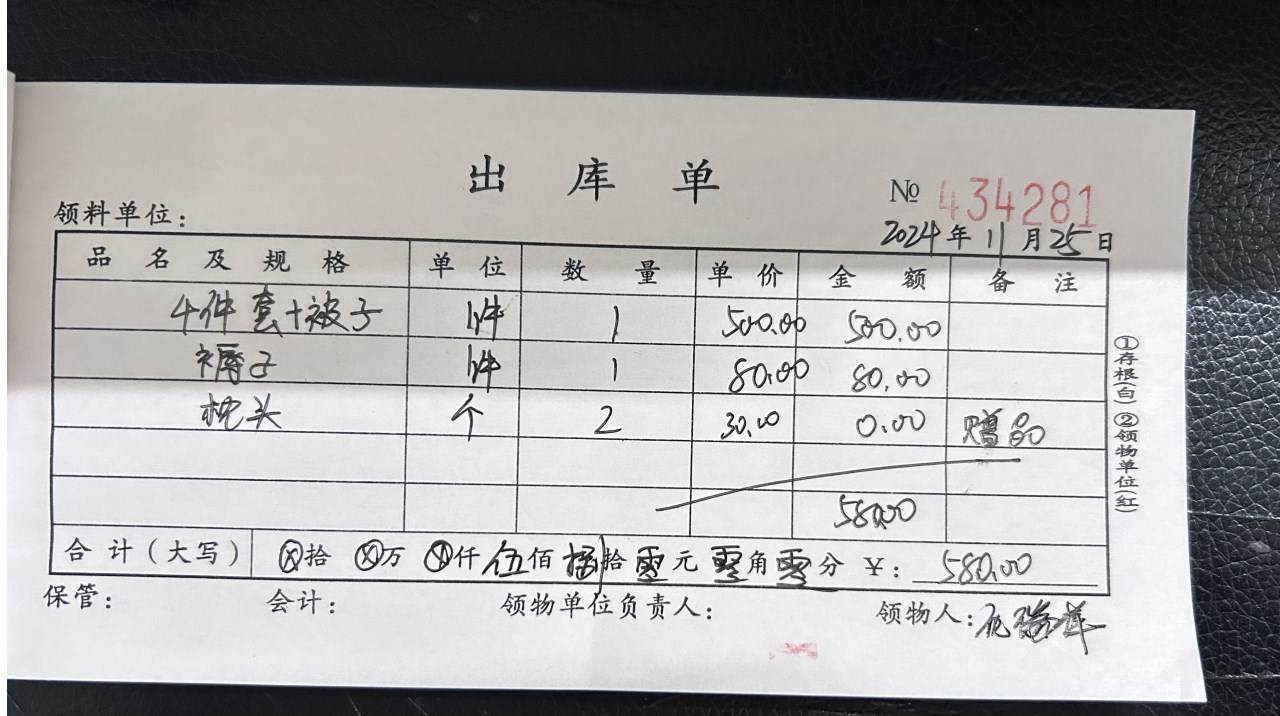 出库单
№ 434281
领料单位：
2024年11月25日
品名及规格 单位 数量 单价 金额 备注
4件套+被子 1件 1 500.00 500.00
褥子 1件 1 80.00 80.00
枕头 个 2 30.00 0.00 赠品
580.00
合计（大写） ⓧ拾 ⓧ万 ⓧ仟 伍佰 捌拾 零元 零角 零分 ¥： 580.00
保管： 会计： 领物单位负责人： 领物人：
①存根(白) ②领物单位(红)